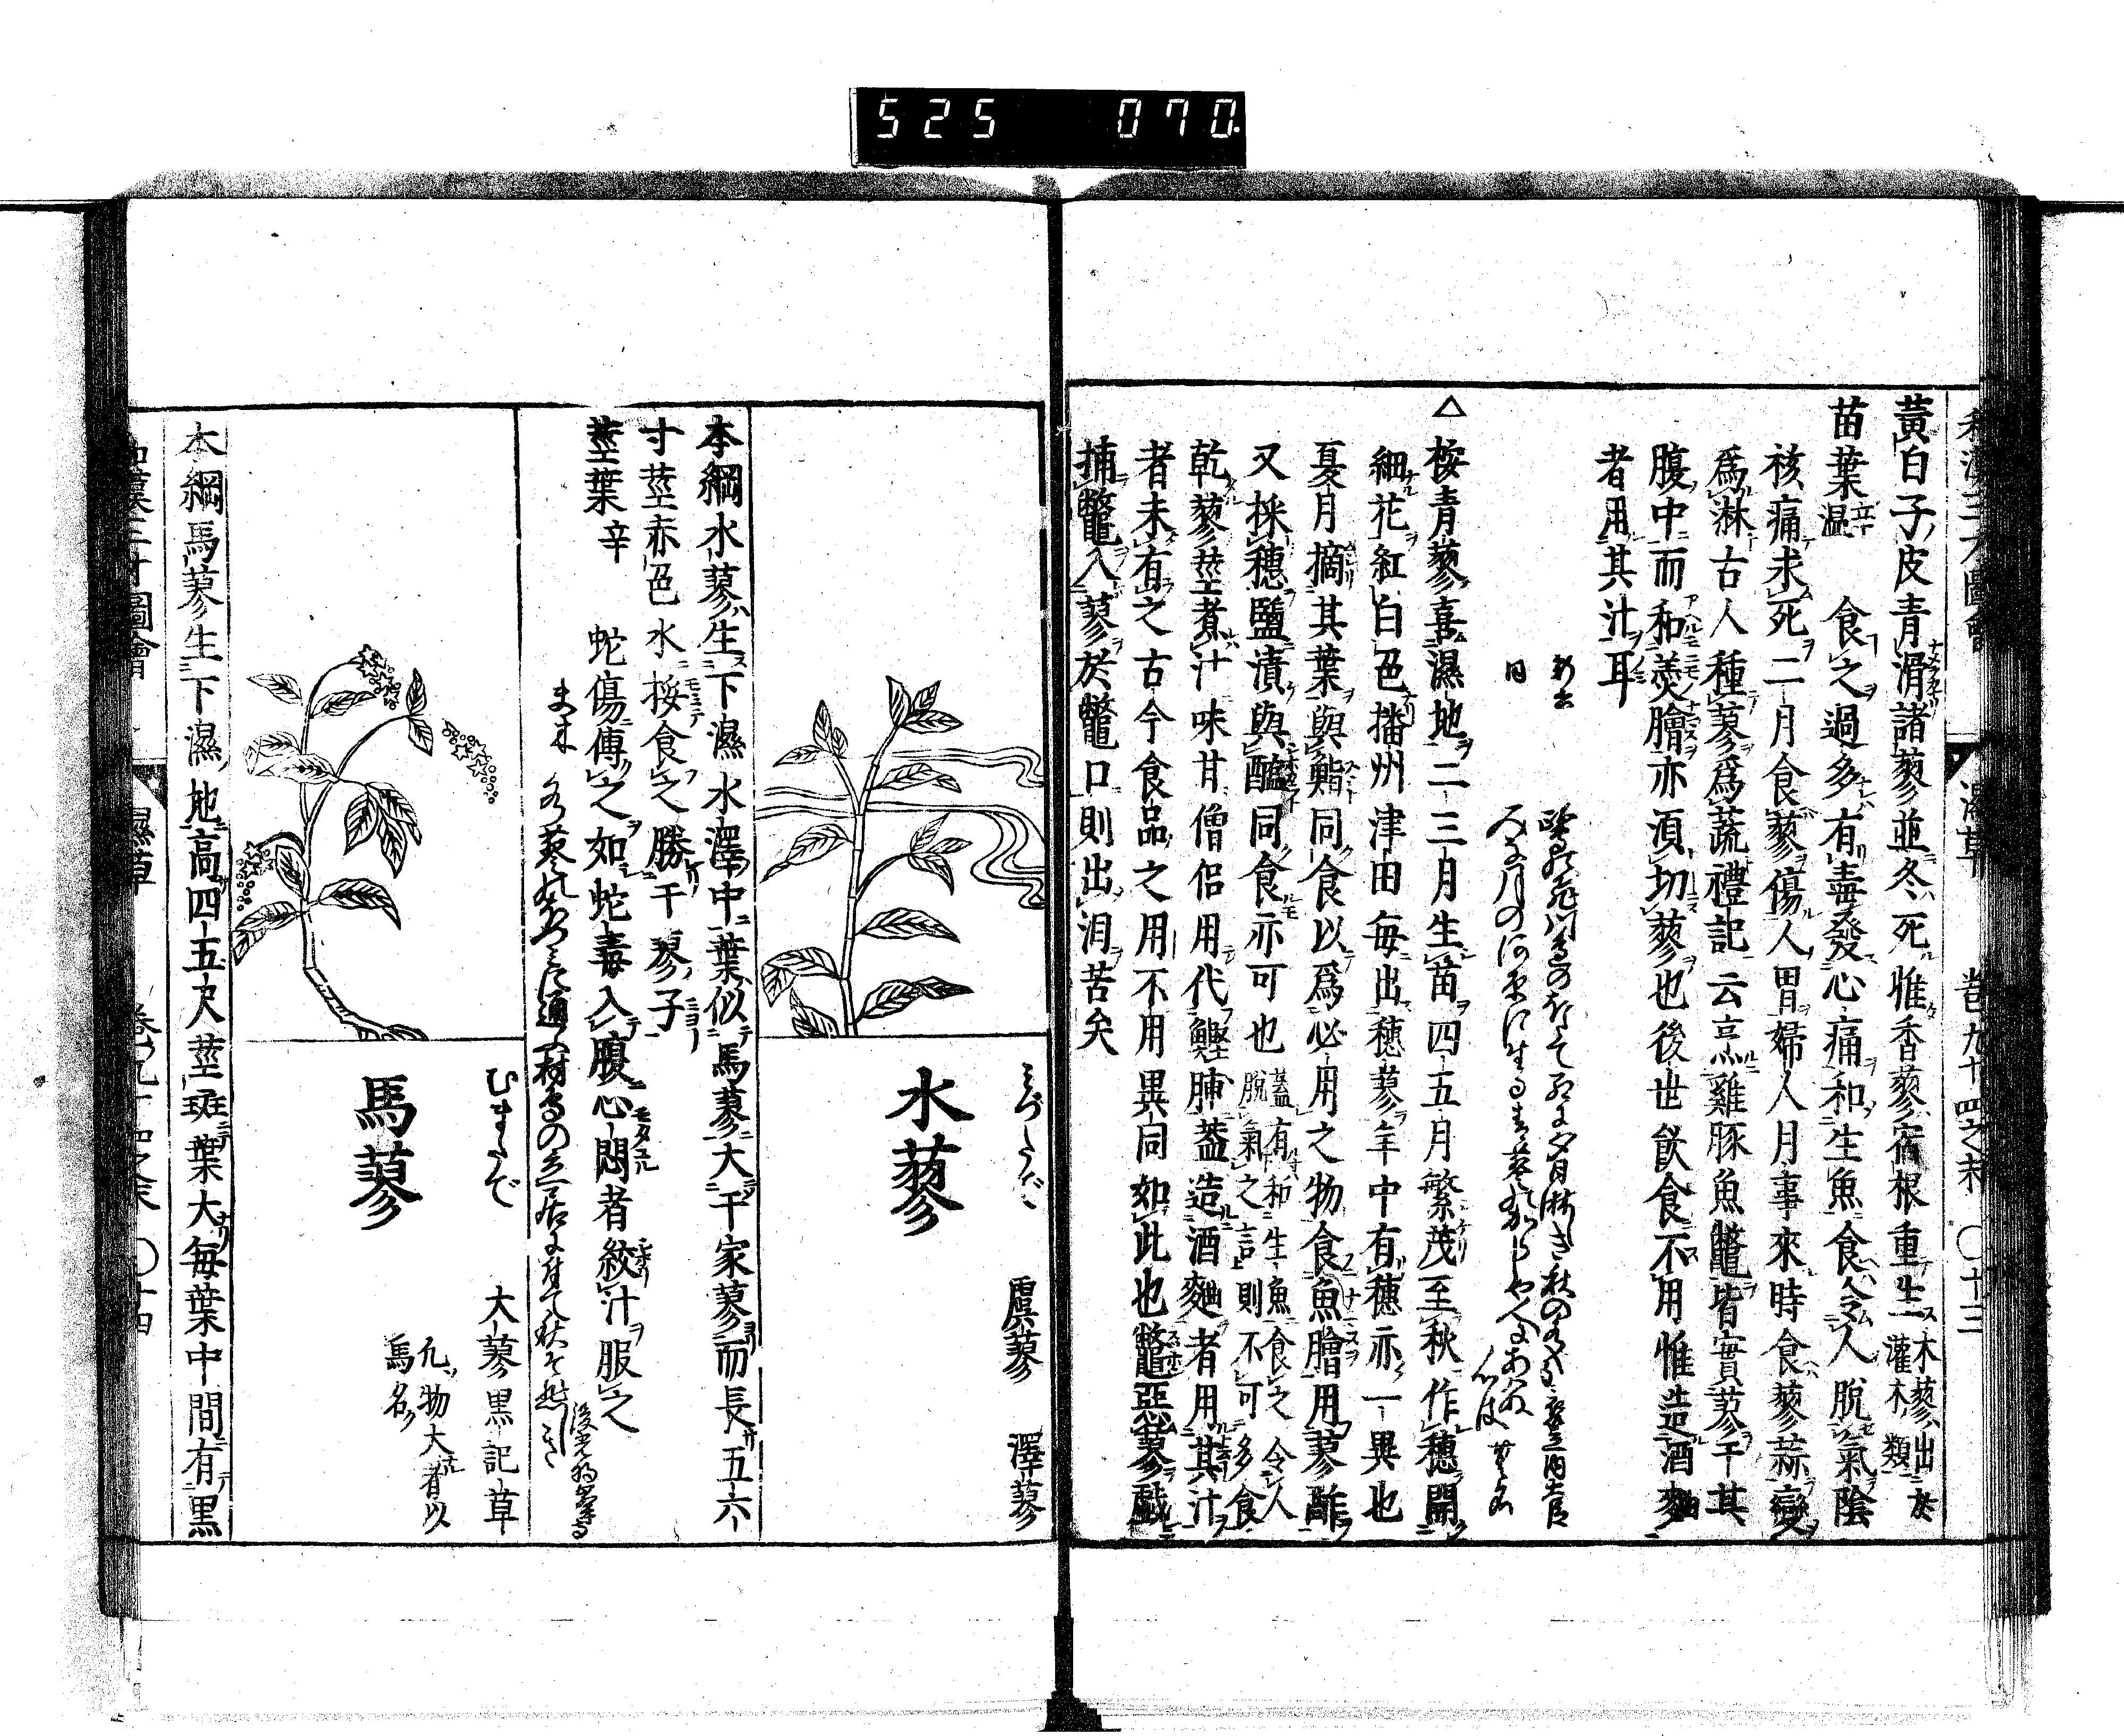 525 070
和漢三才圖會 濕草 卷九十四之末 〇十三
黃白子皮青滑諸蓼並冬死惟香蓼宿根重生木蓼出於灌木類
苗葉辛温 食之過多有毒發心痛和生魚食令人脫氣陰
核痛求死二月食蓼傷人胃婦人月事來時食蓼蒜變
爲淋古人種蓼爲蔬禮記云烹雞豚魚鼈皆實蓼于其
腹中而和羹膾亦須切蓼也後世飲食不用惟造酒麴
者用其汁耳
△ 桉青蓼喜濕地二三月生苗四五月繁茂至秋作穗開
細花紅白色播州津田毎出穗蓼年中有穗亦一異也
夏月摘其葉與鮨同食以爲必用之物食魚膾用蓼酢
又採穗鹽漬與醢同食亦可也蓋有和生魚食之令人脫氣之言則不可多食
乾蓼莖煮汁味甘僧侶用代鰹脯葢造酒麹者用其汁
者未有之古今食品之用不用異同如此也鼈惡蓼戲
捕鼈入蓼於鼈口則出泪苦矣
みづたで
水蓼
虞蓼 澤蓼
本綱水蓼生下濕水澤中葉似馬蓼大于家蓼而長五六
寸莖赤色水挼食之勝于蓼子
莖葉辛 蛇傷傅之如蛇毒入腹心悶者絞汁服之
むまたで
馬蓼
大蓼 黒記草
凡物大者以
馬名
本綱馬蓼生下濕地高四五尺莖斑葉大毎葉中間有黒
和漢三才圖會 濕草 卷九十四之末 〇十四